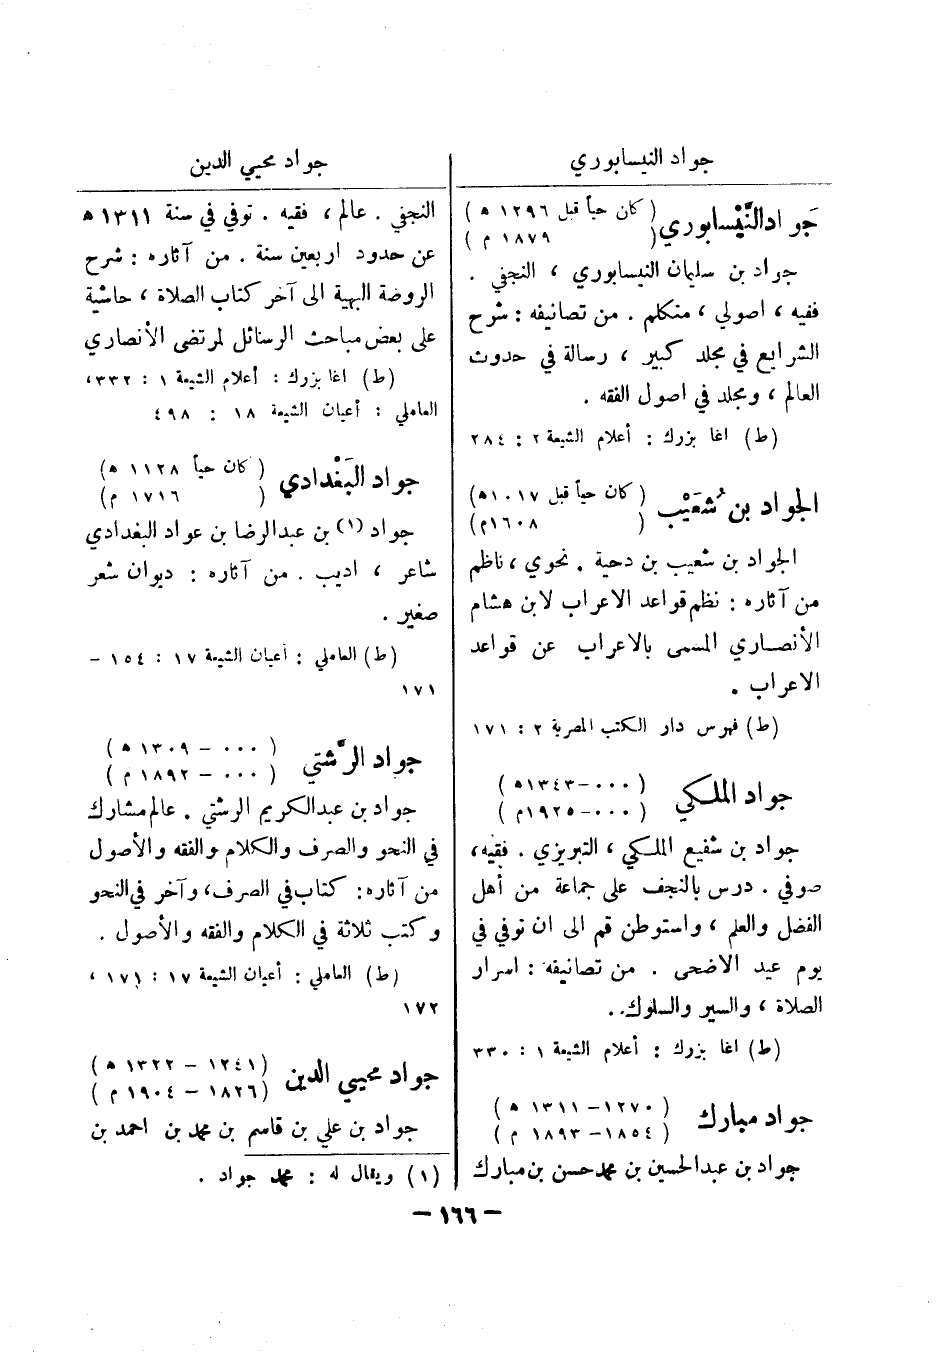 جواد النيسابوري
جَواد النَّيْسابوري (كان حياً قبل ١٢٩٦ ه)
( ١٨٧٩ م)
جواد بن سليمان النيسابوري ، النجفي .
فقيه ، اصولي ، متكلم . من تصانيفه : شرح
الشرايع في مجلد كبير ، رسالة في حدوث
العالم ، ومجلد في اصول الفقه .
(ط) اغا بزرك : أعلام الشيعة ٢ : ٢٨٤
الجواد بن شُعَيْب (كان حياً قبل ١٠١٧ه)
( ١٦٠٨م)
الجواد بن شعيب بن دحية . نحوي ، ناظم
من آثاره : نظم قواعد الاعراب لابن هشام
الأنصاري المسمى بالاعراب عن قواعد
الاعراب .
(ط) فهرس دار الكتب المصرية ٢ : ١٧١
جواد الملكي (٠٠٠ – ١٣٤٣ه)
(٠٠٠ – ١٩٢٥م)
جواد بن شفيع الملكي ، التبريزي . فقيه ،
صوفي . درس بالنجف على جماعة من أهل
الفضل والعلم ، واستوطن قم الى ان توفي في
يوم عيد الاضحى . من تصانيفه : اسرار
الصلاة ، والسير والسلوك .
(ط) اغا بزرك : أعلام الشيعة ١ : ٣٣٠
جواد مبارك (١٢٧٠ – ١٣١١ ه)
(١٨٥٤ – ١٨٩٣ م)
جواد بن عبدالحسين بن محمد حسن بن مبارك
جواد محيي الدين
النجفي . عالم ، فقيه . توفي في سنة ١٣١١ ه
عن حدود اربعين سنة . من آثاره : شرح
الروضة البهية الى آخر كتاب الصلاة ، حاشية
على بعض مباحث الرسائل لمرتضى الأنصاري
(ط) اغا بزرك : أعلام الشيعة ١ : ٣٣٢ ،
العاملي : أعيان الشيعة ١٨ : ٤٩٨
جواد البَغْدادي (كان حياً ١١٢٨ ه)
( ١٧١٦ م)
جواد (١) بن عبدالرضا بن عواد البغدادي
شاعر ، اديب . من آثاره : ديوان شعر
صغير .
(ط) العاملي : أعيان الشيعة ١٧ : ١٥٤ –
١٧١
جواد الرَّشتي (٠٠٠ – ١٣٠٩ ه)
(٠٠٠ – ١٨٩٢ م)
جواد بن عبدالكريم الرشتي . عالم مشارك
في النحو والصرف والكلام والفقه والأصول
من آثاره : كتاب في الصرف ، وآخر في النحو
وكتب ثلاثة في الكلام والفقه والأصول .
(ط) العاملي : أعيان الشيعة ١٧ : ١٧١ ،
١٧٢
جواد محيي الدين (١٢٤١ – ١٣٢٢ ه)
(١٨٢٦ – ١٩٠٤ م)
جواد بن علي بن قاسم بن محمد بن احمد بن
(١) ويقال له : محمد جواد .
– ١٦٦ –